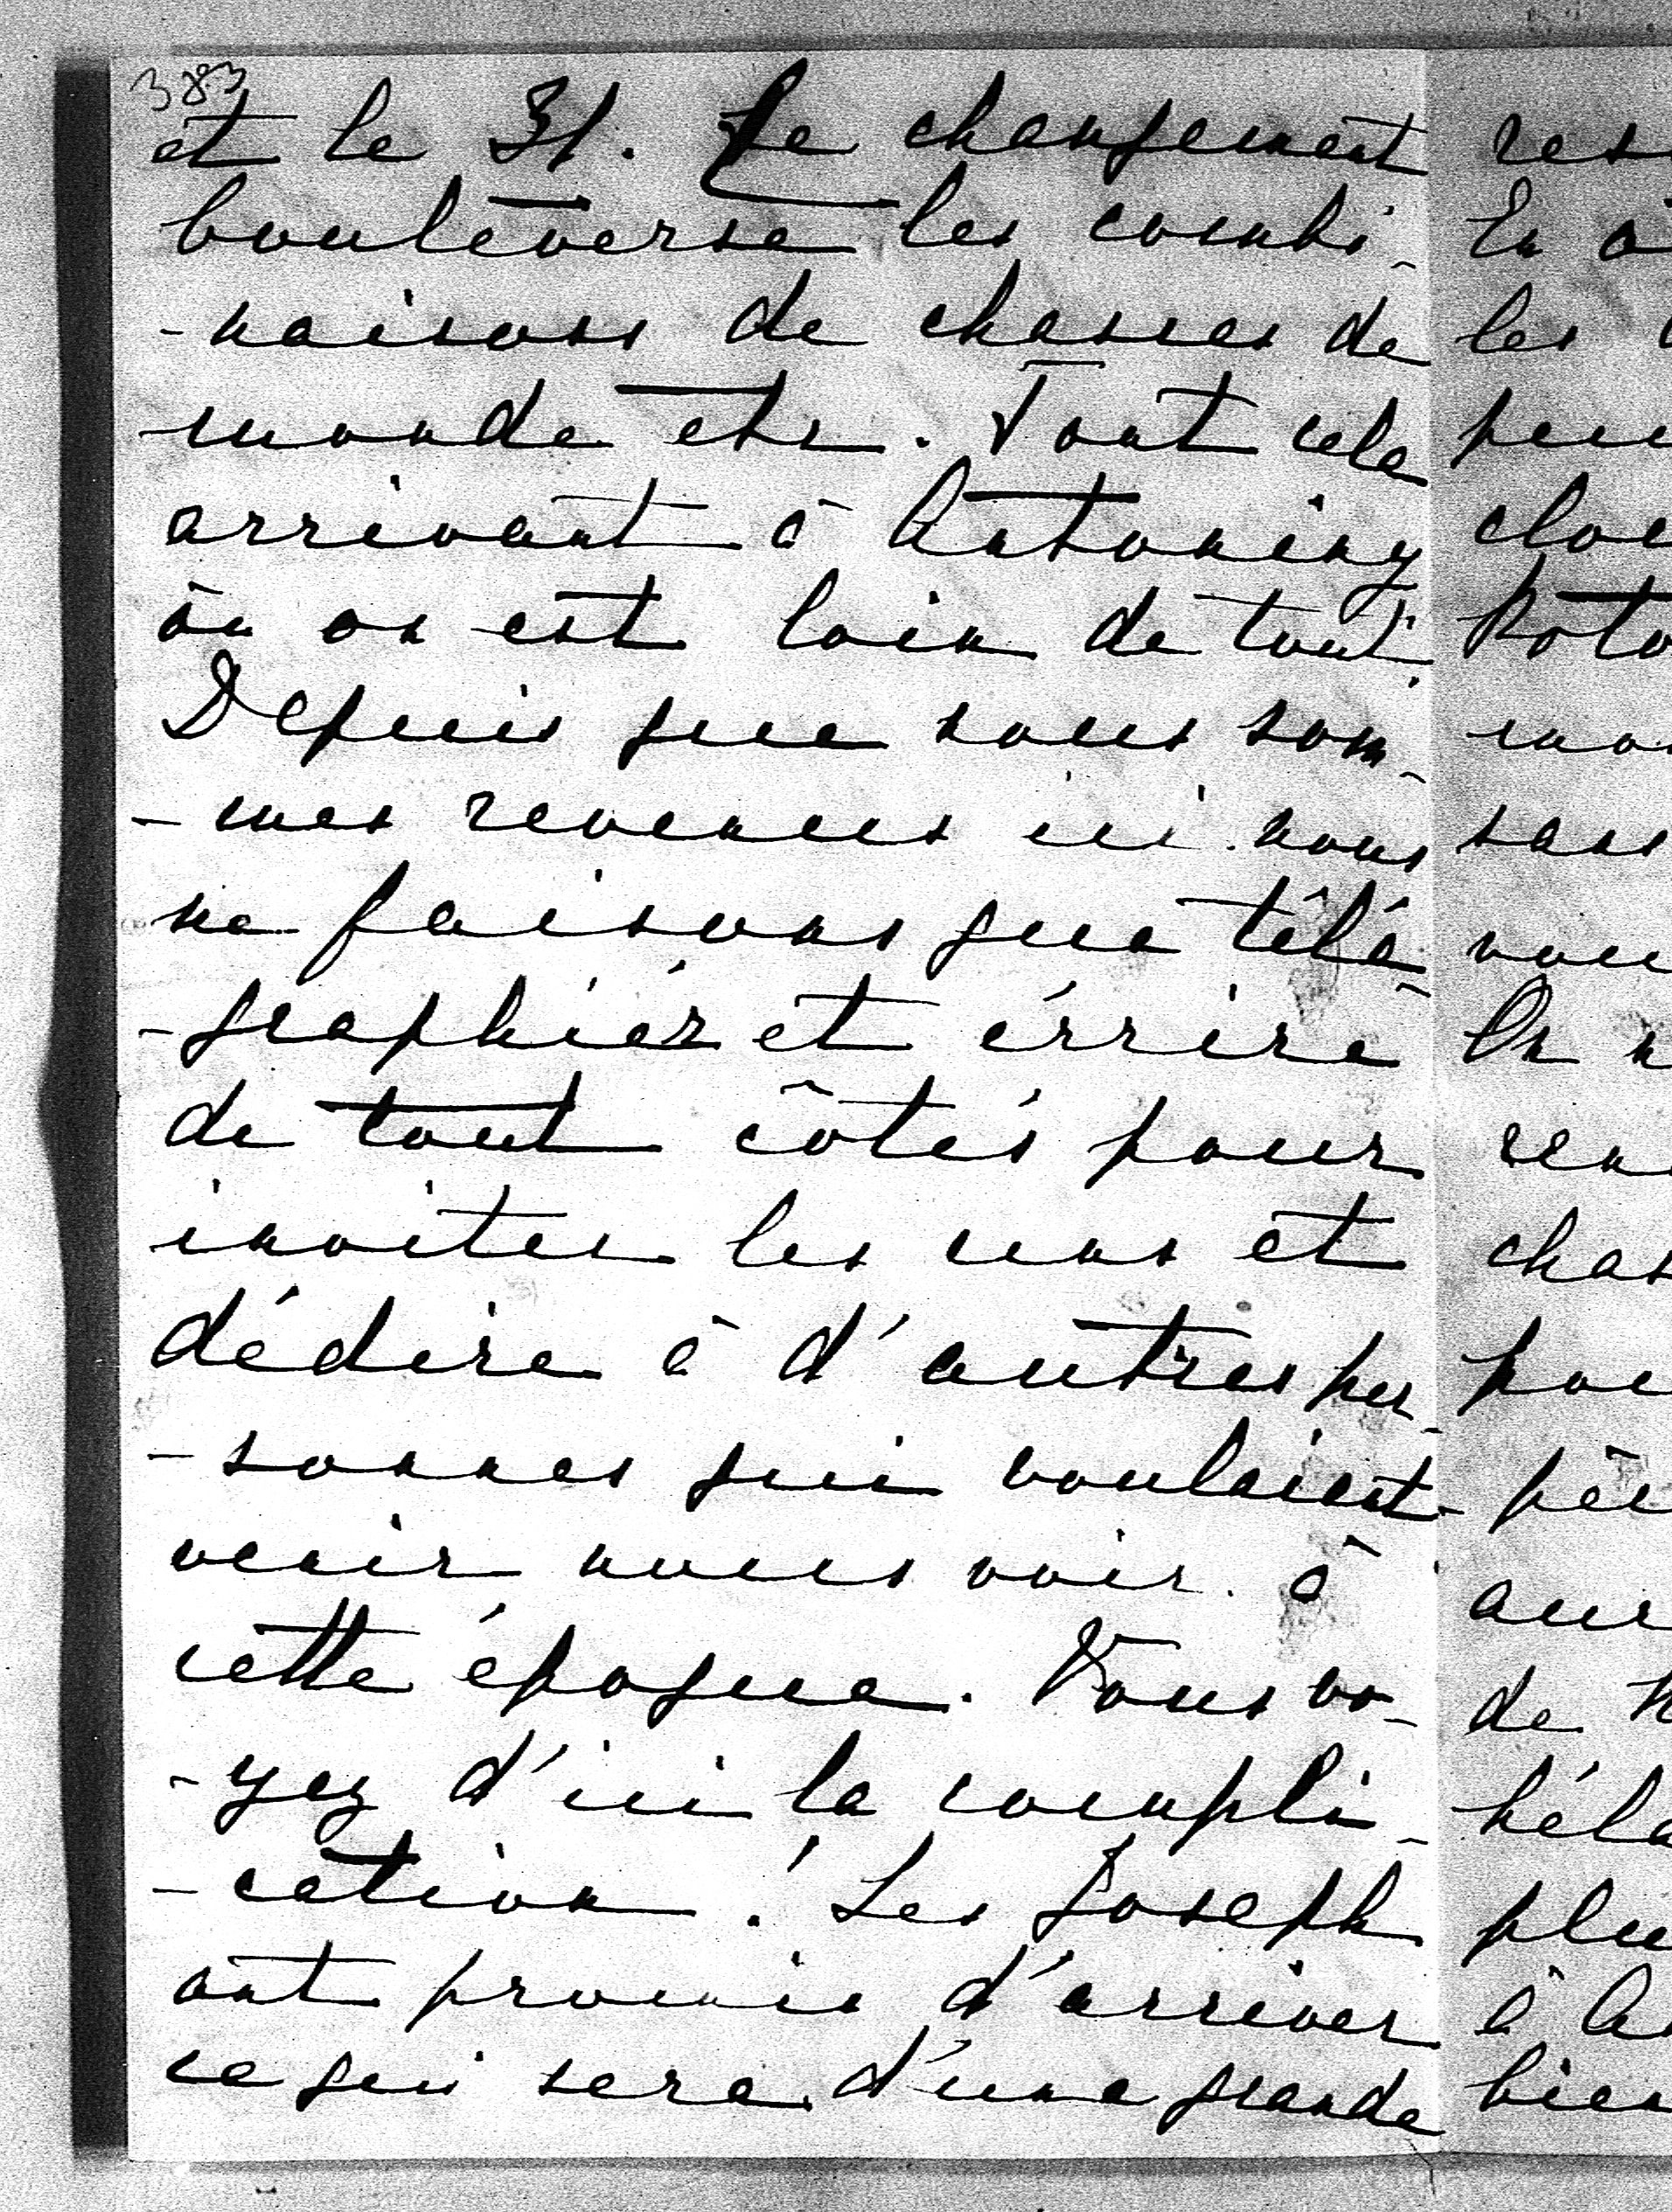 383
et le 31. Le changement
bouleverse les combi-
-naisons de chasses de
monde etc. Tout cela
arrivant à Antoniny
où on est loin de tout.
Depuis que nous som-
-mes revenus ici nous
ne faisons que télé-
-graphier et écrire
de tout côtés pour
inviter les uns et
dédire à d'autres per-
-sonnes qui voulaient
venir nous voir à
cette époque. Vous vo-
-yez d'ici la compli-
-cation! Les Joseph
ont promis d'arriver
ce qui sera d'une grande